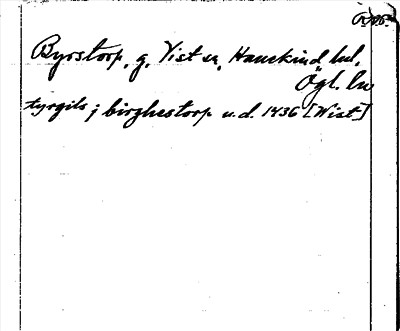 Byrstorp, g. Vist sn, Hanekind hd.
Ögl. ln
tyrgils i birghestorp u.d. 1436 [Wist]